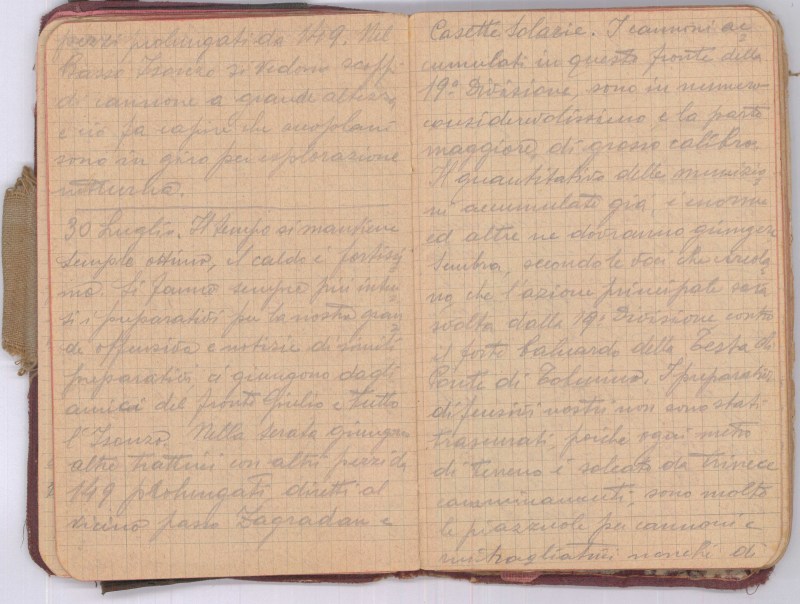 pezzi prolungati da 149. Nel
Basso Isonzo si vedono scoppi
di cannone a grande altezza
e ciò fa capire che aeroplani
sono in giro per esplorazione
notturna.
30 Luglio. Il tempo si mantiene
sempre ottimo, il caldo è fortissi
mo. Si fanno sempre più inten
si i preparativi per la nostra gran
de offensiva e notizie di simili
preparativi ci giungono dagli
amici del fronte Giulio e tutto
l'Isonzo. Nella serata giungono
altre trattrici con altri pezzi da
149 prolungati, diretti al
vicino passo Zagradan e
Casette Solarie. I cannoni ac
cumulati in questo fronte della
19ª Divisione, sono in numero
considerevolissimo e la parte
maggiore, di grosso calibro.
Il quantitativo delle munizio
ni accumulate già, è enorme
ed altre ne dovranno giungere
Sembra, secondo le voci che circola
no, che l'azione principale sarà
svolta dalla 19ª Divisione contro
il forte baluardo della Testa di
Ponte di Tolmino. I preparativi
difensivi nostri non sono stati
trascurati, poiché ogni metro
di terreno è solcato da trincee
camminamenti; sono molte
le piazzuole per cannoni e
mitragliatrici nonché di